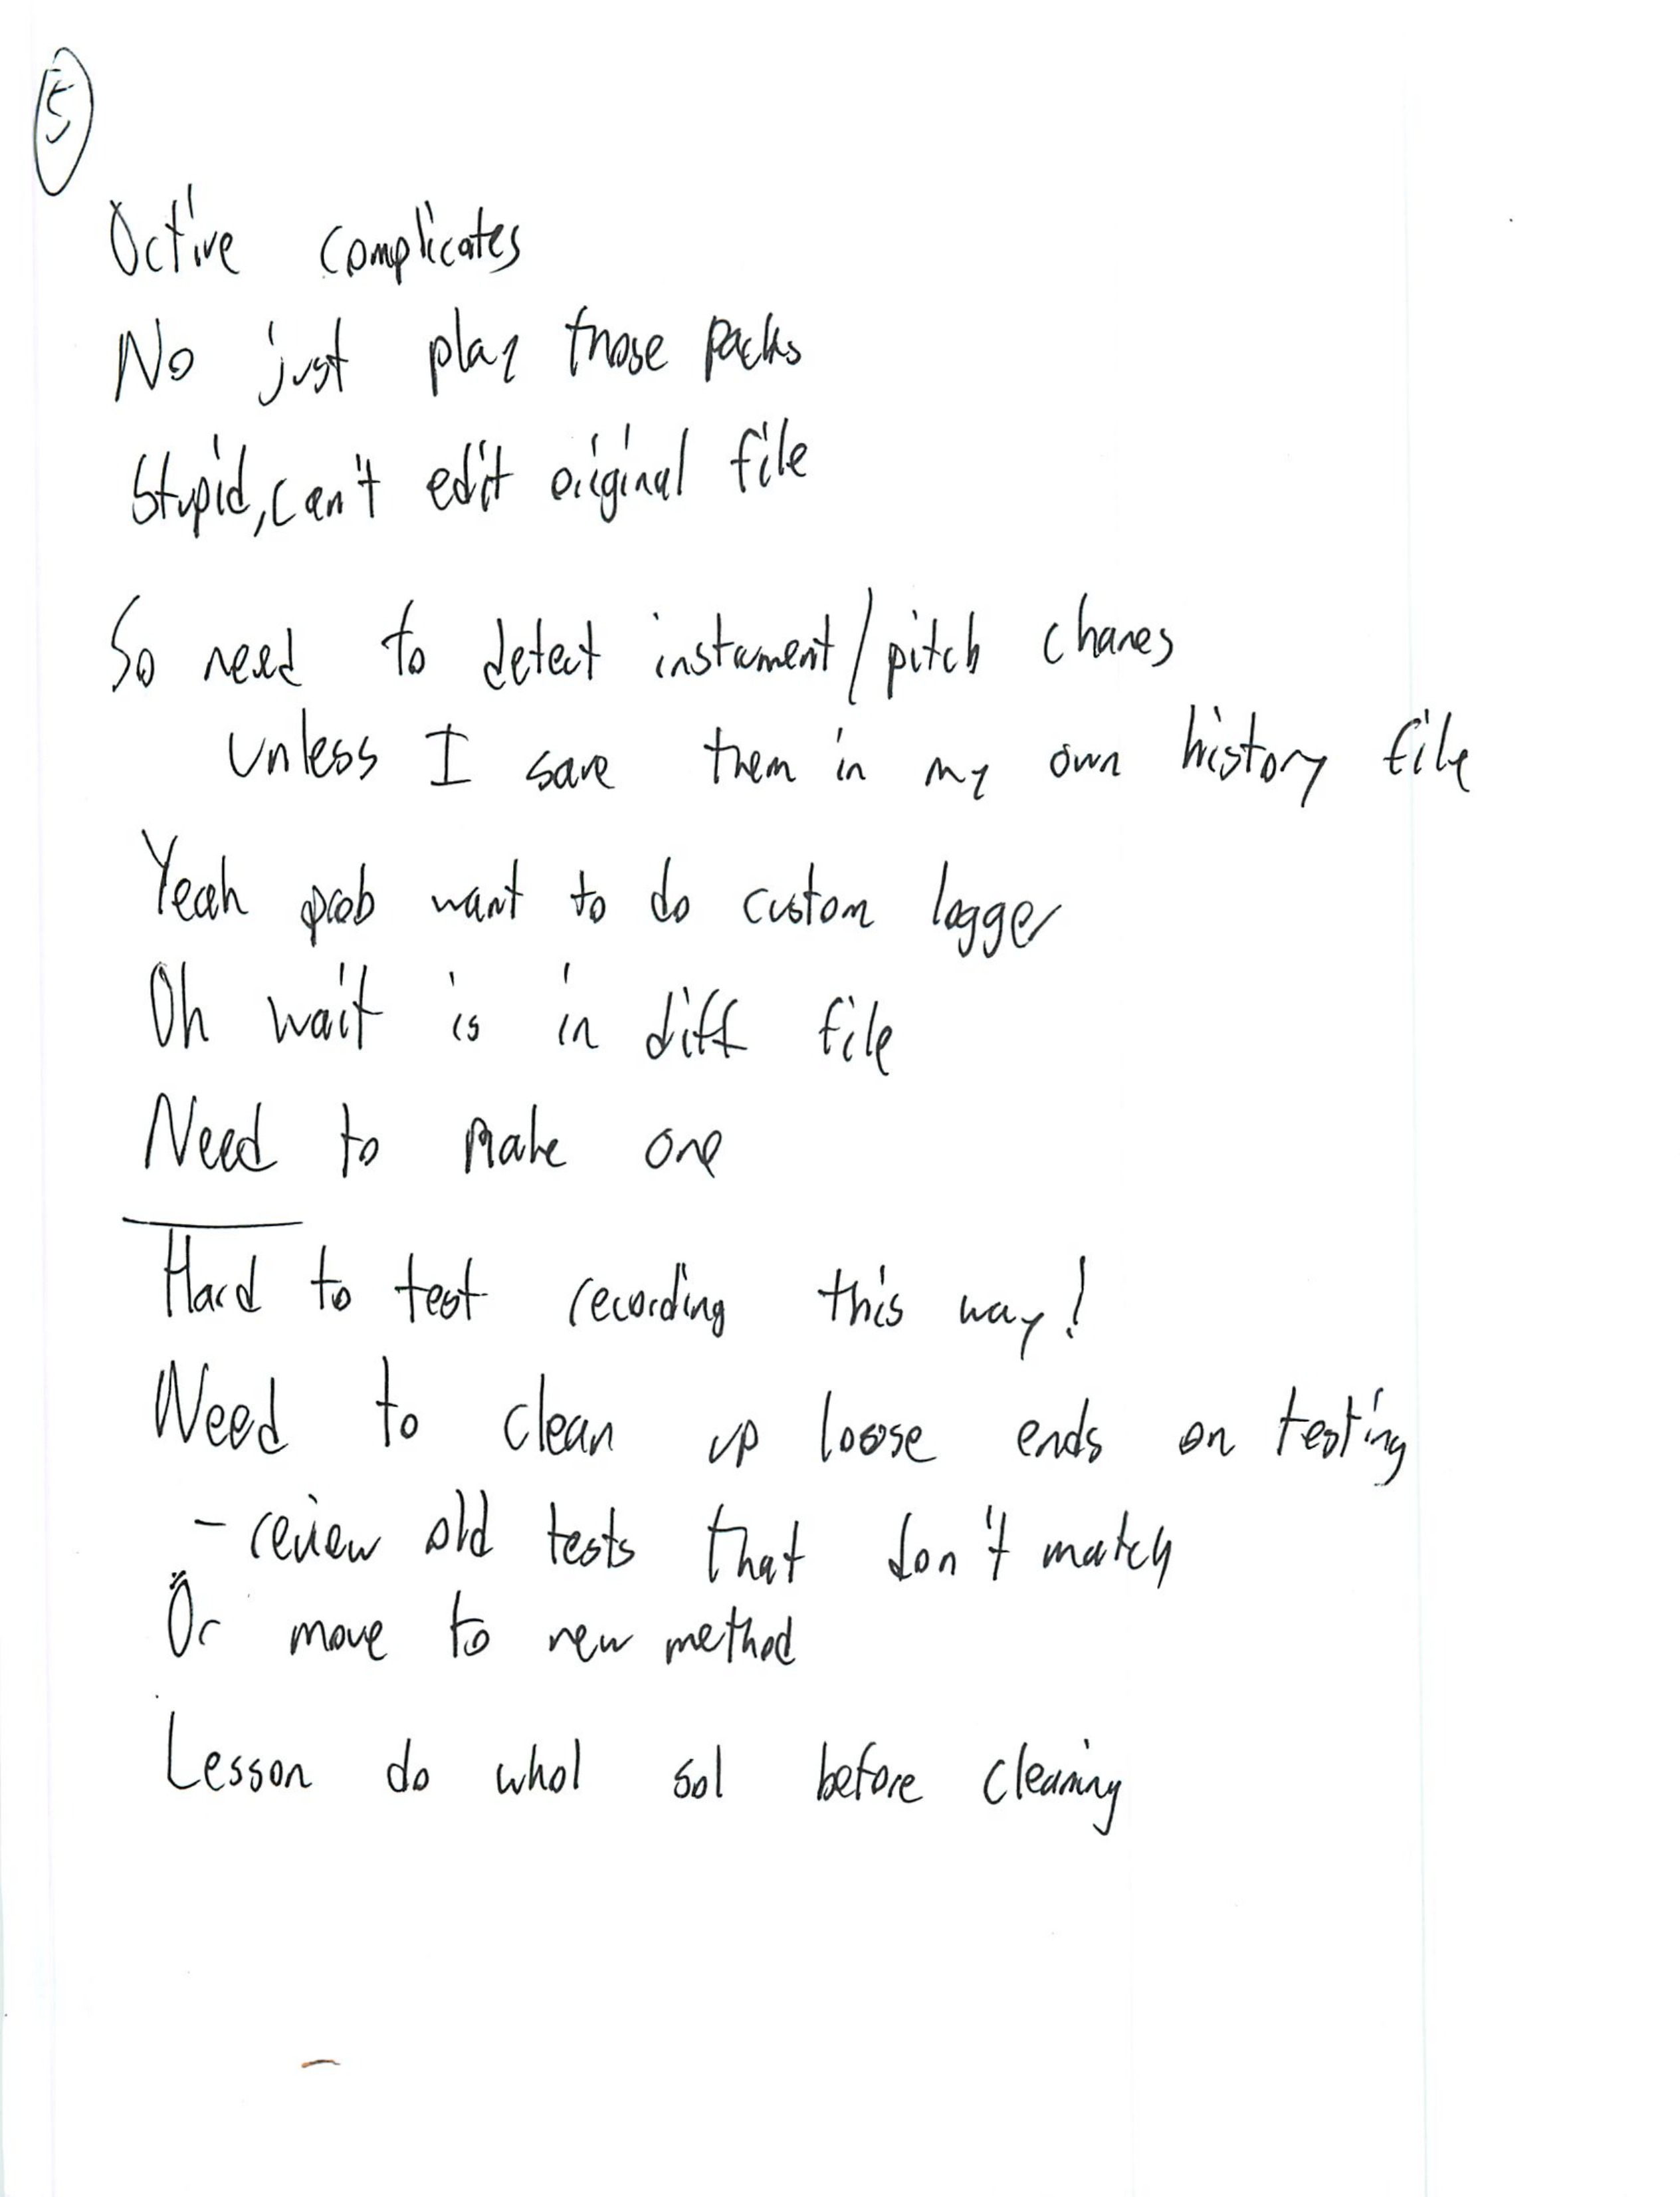 5
Octive complicates
No just play those packs
Stupid, can't edit original file
So need to detect instrument/pitch chanes
unless I save them in my own history file
Yeah prob want to do custom logger
Oh wait is in diff file
Need to make one
Hard to test recording this way!
Need to clean up loose ends on testing
- review old tests that don't match
Or move to new method
Lesson do whol sol before cleaning